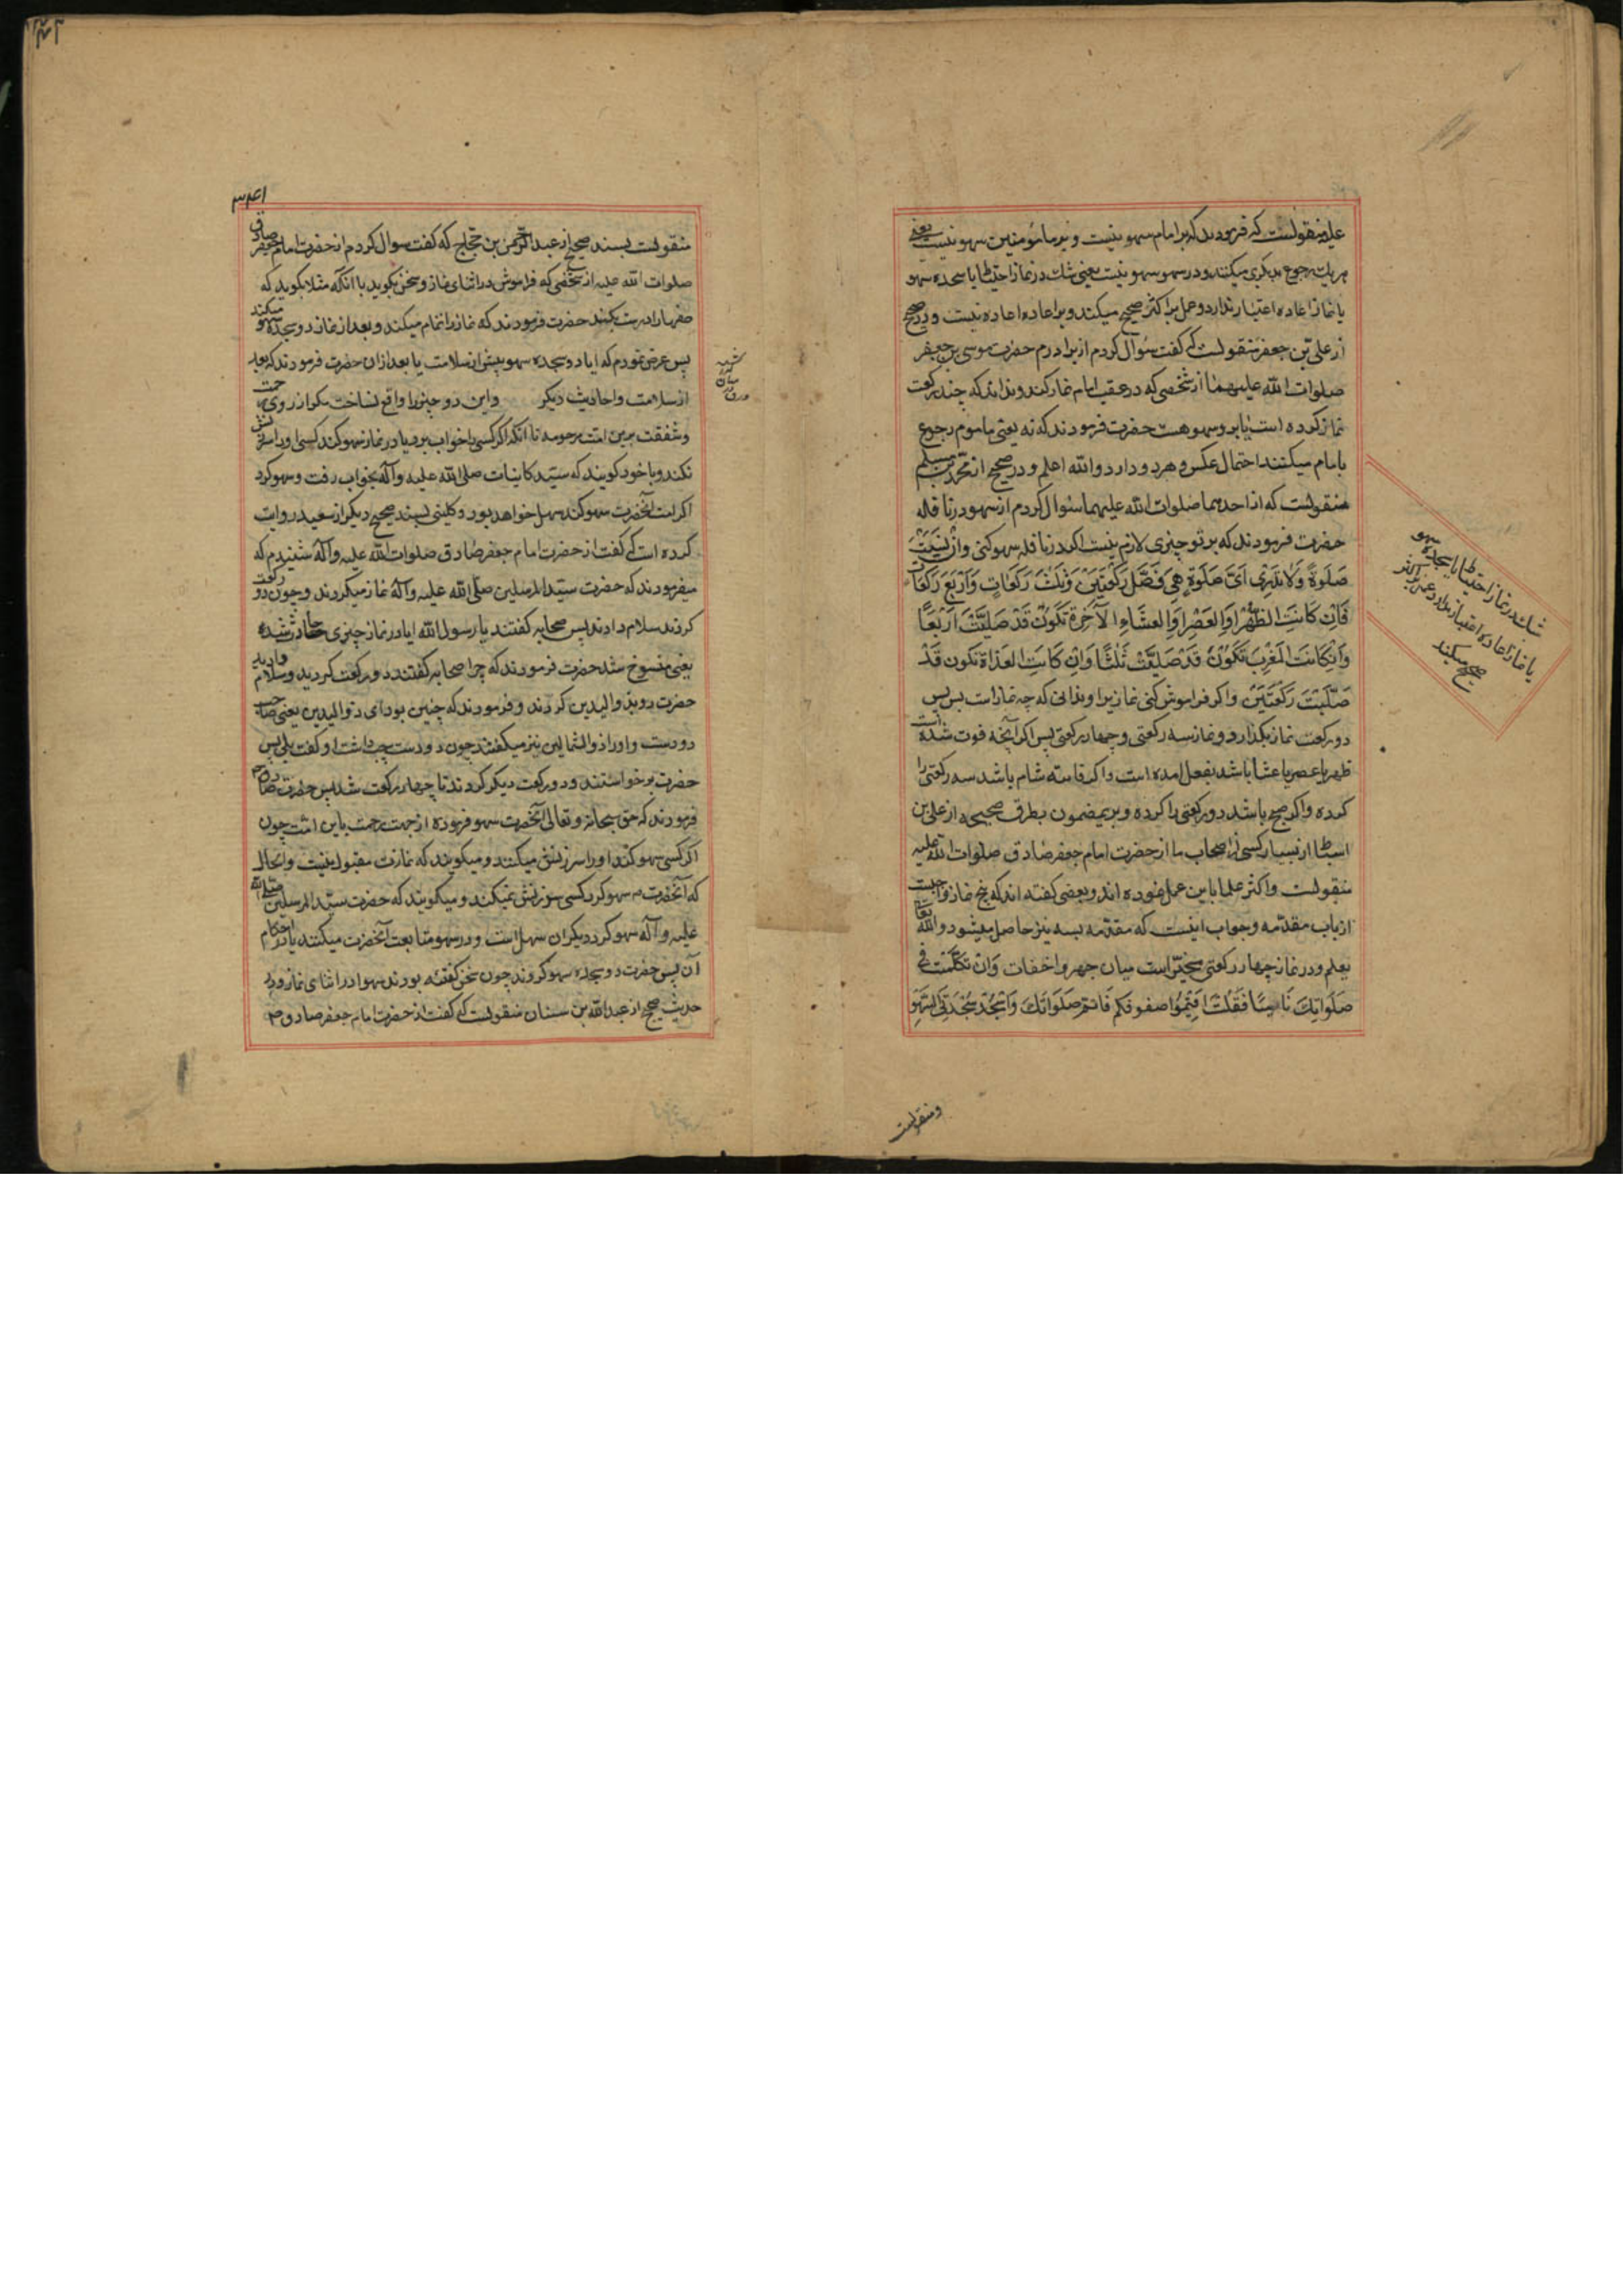 علیه منقولست که فرمودند که بر امام سهو نیست و بر مامومین سهو نیست یعنی
هر یك رجوع بدیکری میکنند و در سهو سهو نیست یعنی شك در نماز احتیاط یا سجده سهو
یا نماز اعاده اعتبار ندارد و حمل بر اکثر صحیح میکند و بر اعاده اعاده نیست و در صحیح
از علی بن جعفر منقولست که گفت سؤال کردم از برادرم حضرت موسی بن جعفر
صلوات الله علیهما از شخصی که در عقب امام نماز کند و نداند که چند رکعت
نماز کرده است ایا بر او سهو هست حضرت فرمودند که نه یعنی ماموم رجوع
بامام میکنند احتمال عکس و هر دو دارد والله اعلم و در صحیح از محمد بن مسلم
منقولست که از احدهما صلوات الله علیهما سؤال کردم از سهو در نافله
حضرت فرمودند که بر تو چیزی لازم نیست اکر در نافله سهو کنی وان نسیت
صلوة ولا تدری ای صلوة هی فصل رکعتین وثلث رکعات واربع رکعات
فان کانت الظهر او العصر او العشاء الآخرة تکون قد صلیت اربعا
وان کانت المغرب تکون قد صلیت ثلثا وان کانت الغداة تکون قد
صلیت رکعتین و اکر فراموش کنی نمازیرا و ندانی که چه نماز است پس
دو رکعت نماز بکذار و نماز سه رکعتی و چهار رکعتی پس اکر آنچه فوت شده است
ظهر یا عصر یا عشا باشد بفعل امده است و اکر فائته شام باشد سه رکعتی را
کرده و اکر صبح باشد دو رکعتی را کرده و بر یمضمون بطرق صحیحه از علی بن
اسباط از بسیار کسی از اصحاب ما از حضرت امام جعفر صادق صلوات الله علیه
منقولست و اکثر علما باین عمل نموده اند و بعضی کفته اند که پنج نماز واجبست
از باب مقدمه و جواب اینست که مقدمه بسه نیز حاصل میشود والله تعالی
یعلم و در نماز چهار رکعتی مخیر است میان جهر و اخفات وان تکلمت فی
صلواتك ناسیا فقلت اقیموا صفوفکم فاتم صلواتك واسجد سجدتی السهو
شك در نماز احتیاط یا سجده سهو
یا نماز اعاده اعتبار ندارد و حمل بر اکثر
صحیح میکند
ومنقولست
۳۴۱
منقولست بسند صحیح از عبدالرحمن بن حجاج که گفت سوال کردم از حضرت امام جعفر صادق
صلوات الله علیه از شخصی که فراموش در اثنای نماز و سخن بکوید با آنکه مثلا بکوید که
صفها را درست بکنید حضرت فرمودند که نماز را تمام میکند و بعد از نماز دو سجده سهو میکند
پس عرض نمودم که ایا دو سجده سهو پیش از سلامست یا بعد از ان حضرت فرمودند که بعد
از سلامست و احادیث دیکر واین دو چیز را واقع نساخت مکر از روی رحمت
و شفقت بر این امت مرحومه تا آنکه اکر کسی را خواب برد یا در نماز سهو کند کسی او را سرزنش
نکند و با خود کویند که سید کاینات صلی الله علیه وآله بخواب رفت و سهو کرد
اکر امت آنحضرت سهو کند سهل خواهد بود و کلینی بسند صحیح دیکر از سعید روایت
کرده است که گفت از حضرت امام جعفر صادق صلوات الله علیه وآله شنیدم که
میفرمودند که حضرت سید المرسلین صلی الله علیه وآله نماز میکردند و چون دو رکعت
کردند سلام دادند پس صحابه کفتند یا رسول الله ایا در نماز چیزی حادث شده
یعنی منسوخ شد حضرت فرمودند که چرا صحابه کفتند دو رکعت کردید و سلام دادید
حضرت رو بذوالیدین کردند و فرمودند که چنین بود ای ذوالیدین یعنی صاحب
دو دست و او را ذوالشمالین نیز میکفتند چون دو دست چپ داشت او کفت بلی پس
حضرت برخواستند و دو رکعت دیکر کردند تا چهار رکعت شد پس حضرت صادق
فرمودند که حق سبحانه و تعالی آنحضرت سهو فرموده از جهت رحمت باین امت چون
اکر کسی سهو کند او را سرزنش میکنند و میکویند که نمازت مقبول نیست و الحال
که آنحضرت سهو کرد کسی سرزنش نمیکند و میکویند که حضرت سید المرسلین صلی الله
علیه وآله سهو کرد دیکران سهل است و در سهو متابعت آنحضرت میکنند با در احکام
آن پس حضرت دو سجده سهو کردند چون سخن کفته بودند سهوا در اثنای نماز و در
حدیث صحیح از عبدالله بن سنان منقولست که کفت از حضرت امام جعفر صادق